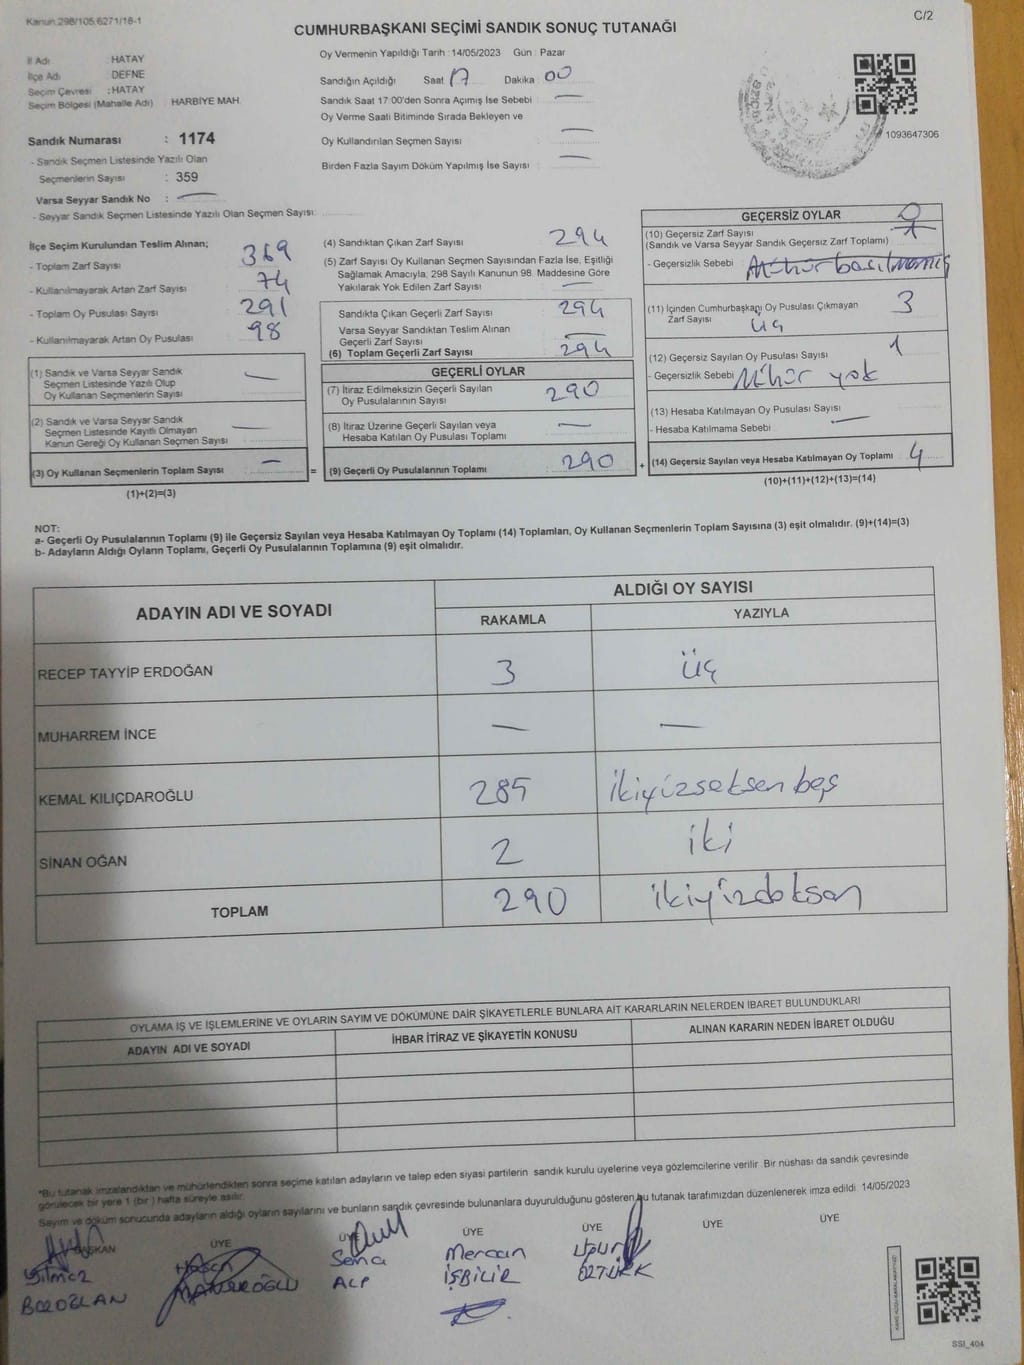 Kanun 298/105,6271/18-1
C/2
CUMHURBAŞKANI SEÇİMİ SANDIK SONUÇ TUTANAĞI
Oy Vermenin Yapıldığı Tarih : 14/05/2023 Gün : Pazar
İl Adı : HATAY
İlçe Adı : DEFNE
Seçim Çevresi : HATAY
Seçim Bölgesi (Mahalle Adı) : HARBİYE MAH.
Sandığın Açıldığı Saat 17 Dakika 00
Sandık Saat 17:00'den Sonra Açımış İse Sebebi : —
Oy Verme Saati Bitiminde Sırada Bekleyen ve
Oy Kullandırılan Seçmen Sayısı : —
Birden Fazla Sayım Döküm Yapılmış İse Sayısı : —
1093647306
Sandık Numarası : 1174
- Sandık Seçmen Listesinde Yazılı Olan
Seçmenlerin Sayısı : 359
Varsa Seyyar Sandık No : —
- Seyyar Sandık Seçmen Listesinde Yazılı Olan Seçmen Sayısı:
İlçe Seçim Kurulundan Teslim Alınan;
- Toplam Zarf Sayısı 369
- Kullanılmayarak Artan Zarf Sayısı 74
- Toplam Oy Pusulası Sayısı 291
- Kullanılmayarak Artan Oy Pusulası 98
(1) Sandık ve Varsa Seyyar Sandık
Seçmen Listesinde Yazılı Olup
Oy Kullanan Seçmenlerin Sayısı —
(2) Sandık ve Varsa Seyyar Sandık
Seçmen Listesinde Kayıtlı Olmayan
Kanun Gereği Oy Kullanan Seçmen Sayısı —
(3) Oy Kullanan Seçmenlerin Toplam Sayısı —
(1)+(2)=(3)
(4) Sandıktan Çıkan Zarf Sayısı 294
(5) Zarf Sayısı Oy Kullanan Seçmen Sayısından Fazla İse, Eşitliği
Sağlamak Amacıyla; 298 Sayılı Kanunun 98. Maddesine Göre
Yakılarak Yok Edilen Zarf Sayısı : —
Sandıkta Çıkan Geçerli Zarf Sayısı 294
Varsa Seyyar Sandıktan Teslim Alınan
Geçerli Zarf Sayısı —
(6) Toplam Geçerli Zarf Sayısı 294
GEÇERLİ OYLAR
(7) İtiraz Edilmeksizin Geçerli Sayılan
Oy Pusulalarının Sayısı 290
(8) İtiraz Üzerine Geçerli Sayılan veya
Hesaba Katılan Oy Pusulası Toplamı —
= (9) Geçerli Oy Pusulalarının Toplamı 290
GEÇERSİZ OYLAR
(10) Geçersiz Zarf Sayısı
(Sandık ve Varsa Seyyar Sandık Geçersiz Zarf Toplamı)
- Geçersizlik Sebebi Mühür basılmamış
(11) İçinden Cumhurbaşkanı Oy Pusulası Çıkmayan 3
Zarf Sayısı üç
(12) Geçersiz Sayılan Oy Pusulası Sayısı 1
- Geçersizlik Sebebi Mühür yok
(13) Hesaba Katılmayan Oy Pusulası Sayısı
- Hesaba Katılmama Sebebi : —
+ (14) Geçersiz Sayılan veya Hesaba Katılmayan Oy Toplamı 4
(10)+(11)+(12)+(13)=(14)
NOT:
a- Geçerli Oy Pusulalarının Toplamı (9) ile Geçersiz Sayılan veya Hesaba Katılmayan Oy Toplamı (14) Toplamları, Oy Kullanan Seçmenlerin Toplam Sayısına (3) eşit olmalıdır. (9)+(14)=(3)
b- Adayların Aldığı Oyların Toplamı, Geçerli Oy Pusulalarının Toplamına (9) eşit olmalıdır.
ADAYIN ADI VE SOYADI
ALDIĞI OY SAYISI
RAKAMLA YAZIYLA
RECEP TAYYİP ERDOĞAN 3 üç
MUHARREM İNCE — —
KEMAL KILIÇDAROĞLU 285 ikiyüzseksen beş
SİNAN OĞAN 2 iki
TOPLAM 290 ikiyüzdoksan
OYLAMA İŞ VE İŞLEMLERİNE VE OYLARIN SAYIM VE DÖKÜMÜNE DAİR ŞİKAYETLERLE BUNLARA AİT KARARLARIN NELERDEN İBARET BULUNDUKLARI
ADAYIN ADI VE SOYADI İHBAR İTİRAZ VE ŞİKAYETİN KONUSU ALINAN KARARIN NEDEN İBARET OLDUĞU
*Bu tutanak imzalandıktan ve mühürlendikten sonra seçime katılan adayların ve talep eden siyasi partilerin sandık kurulu üyelerine veya gözlemcilerine verilir. Bir nüshası da sandık çevresinde
görülecek bir yere 1 (bir) hafta süreyle asılır.
Sayım ve döküm sonucunda adayların aldığı oyların sayılarını ve bunların sandık çevresinde bulunanlara duyurulduğunu gösteren bu tutanak tarafımızdan düzenlenerek imza edildi. 14/05/2023
BAŞKAN ÜYE ÜYE ÜYE ÜYE ÜYE ÜYE
Yılmaz Hasan Sena Mercan Uğur
BOZOĞLAN MANSUROĞLU ALP İŞBİLİR ÖZTÜRK
SSI_404